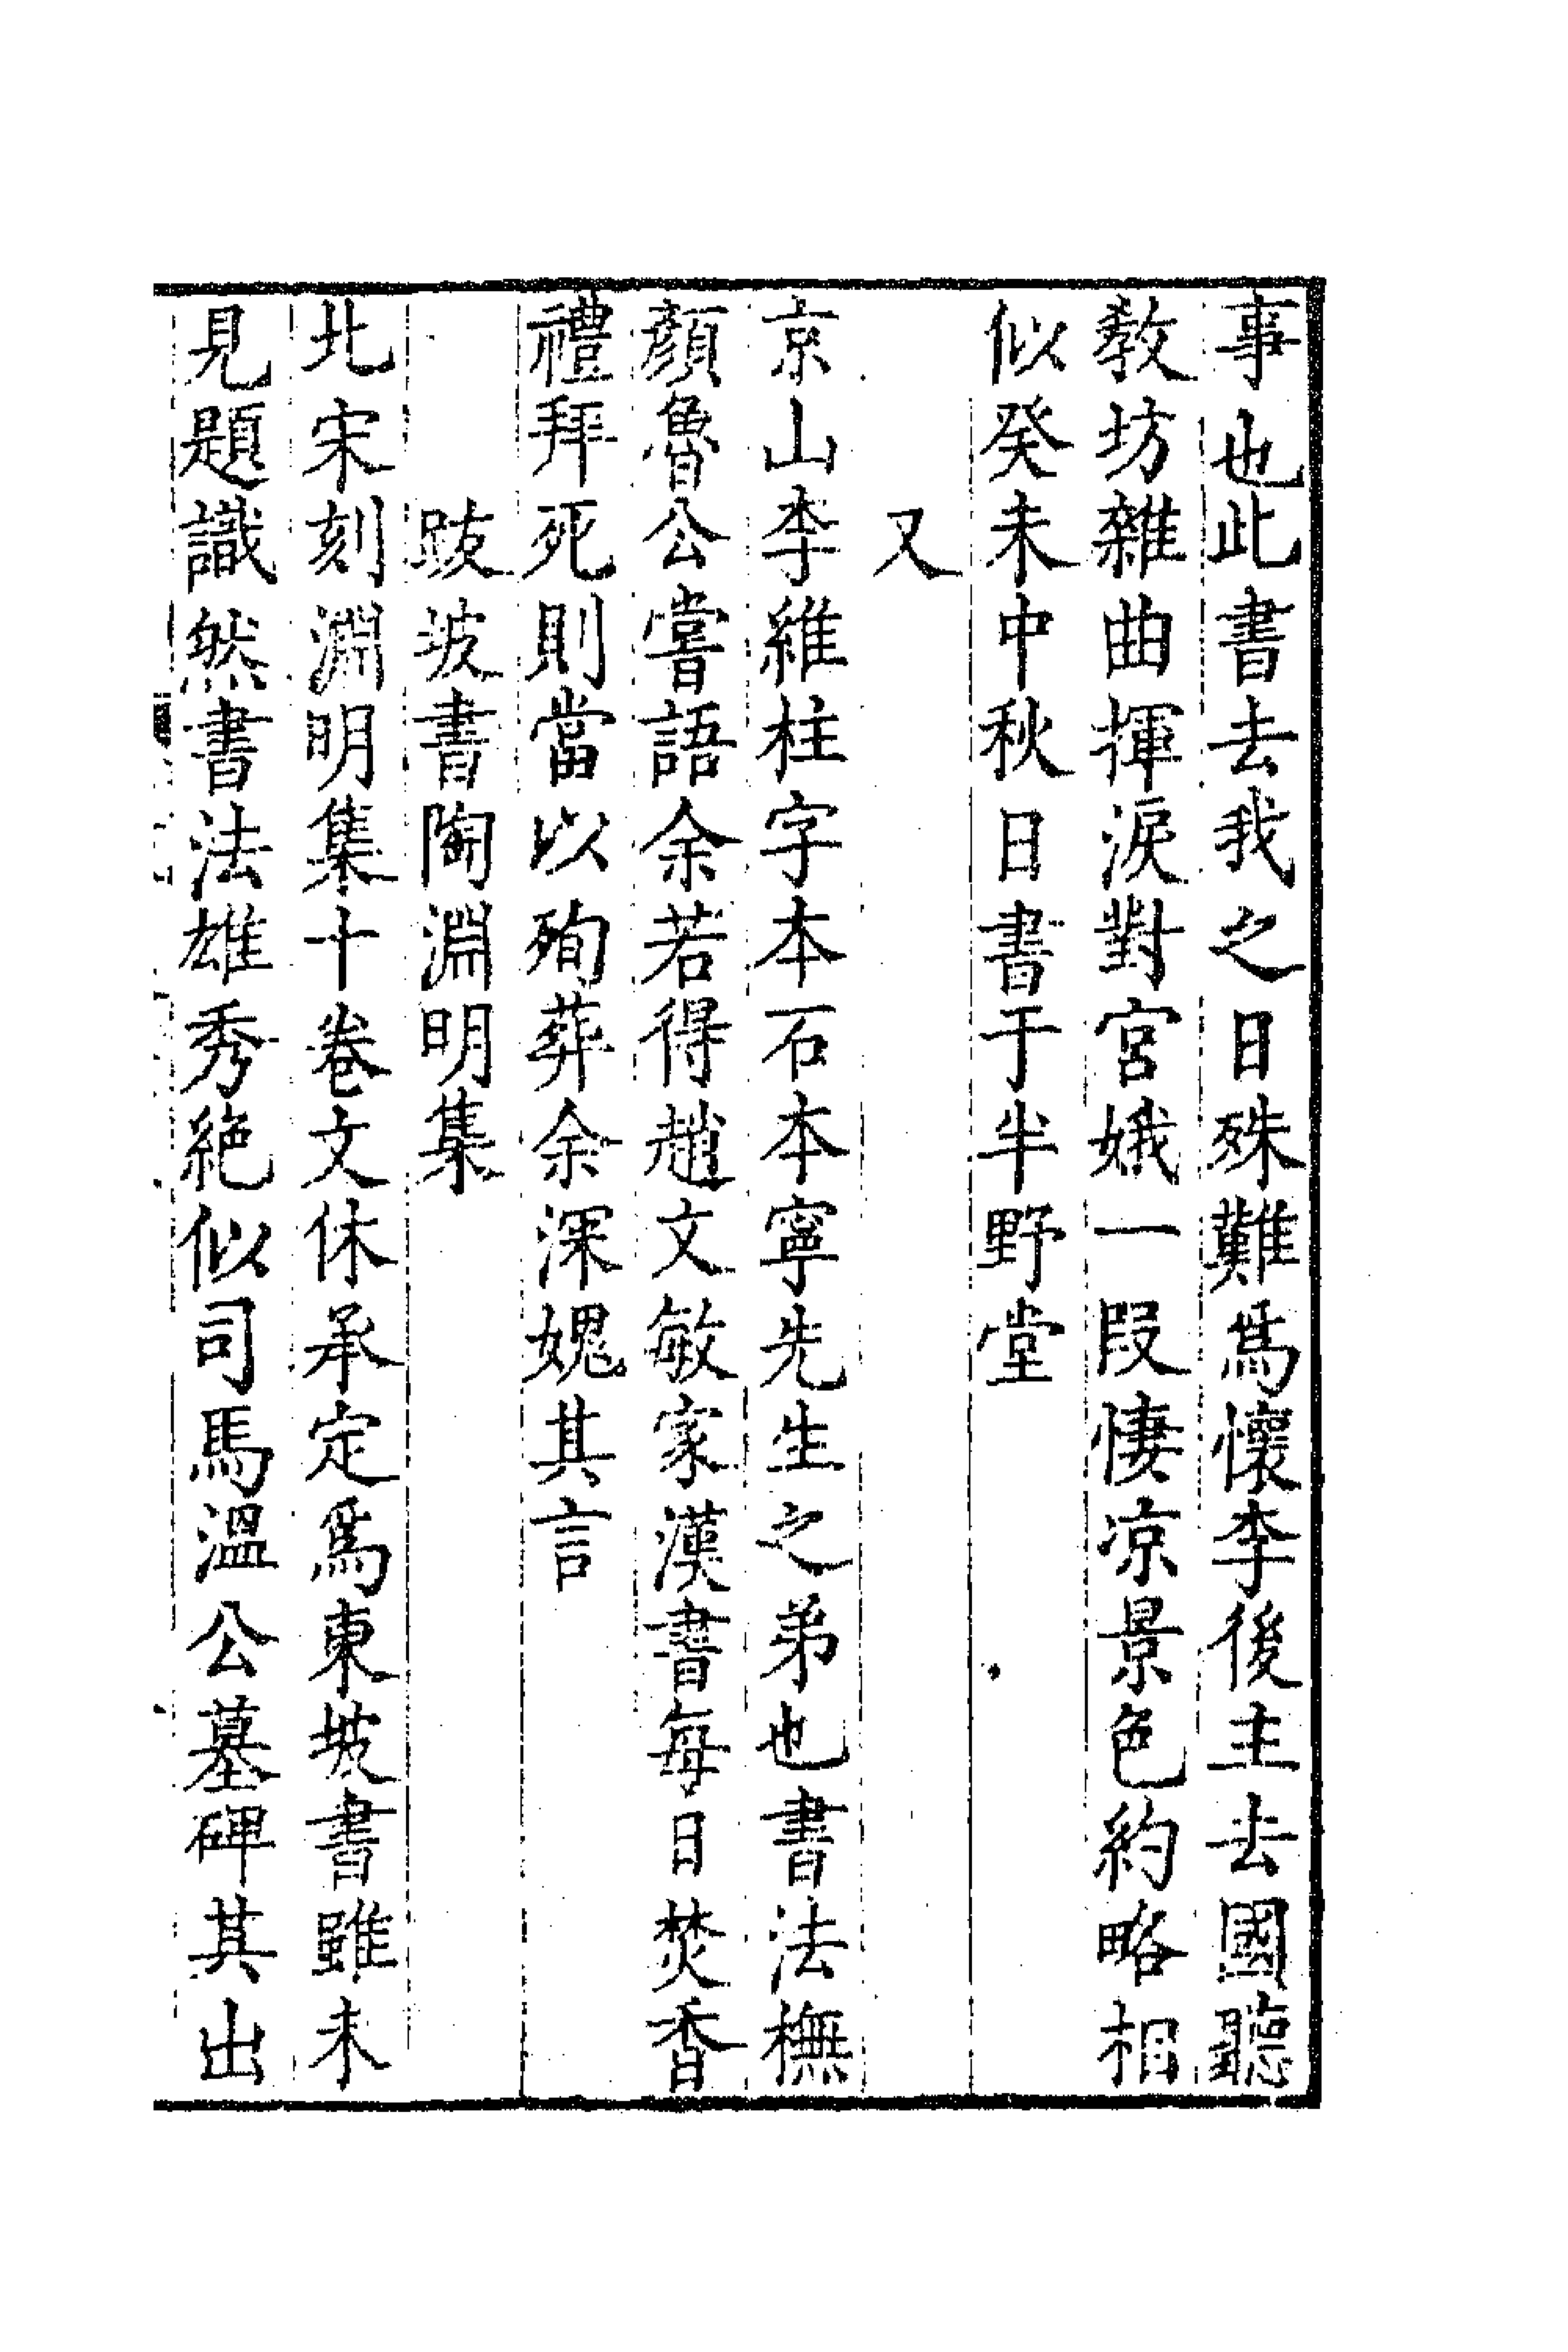 事也此書去我之日殊難爲懷李後主去國聽
教坊雜曲揮淚對宮娥一段悽凉景色約略相
似癸未中秋日書于半野堂
又
京山李維柱字本石本寧先生之弟也書法橅
顏魯公嘗語余若得趙文敏家漢書每日焚香
禮拜死則當以殉葬余深媿其言
跋坡書陶淵明集
北宋刻淵明集十卷文休承定爲東坡書雖未
見題識然書法雄秀絕似司馬溫公墓碑其出